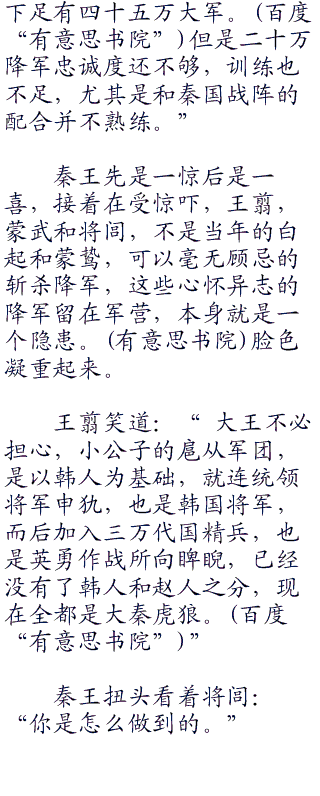 下足有四十五万大军。(百度
“有意思书院”)但是二十万
降军忠诚度还不够，训练也
不足，尤其是和秦国战阵的
配合并不熟练。”
秦王先是一惊后是一
喜，接着在受惊吓，王翦，
蒙武和将闾，不是当年的白
起和蒙骜，可以毫无顾忌的
斩杀降军，这些心怀异志的
降军留在军营，本身就是一
个隐患。(有意思书院)脸色
凝重起来。
王翦笑道：“ 大王不必
担心，小公子的扈从军团，
是以韩人为基础，就连统领
将军申犰，也是韩国将军，
而后加入三万代国精兵，也
是英勇作战所向睥睨，已经
没有了韩人和赵人之分，现
在全都是大秦虎狼。(百度
“有意思书院”)”
秦王扭头看着将闾：
“你是怎么做到的。”